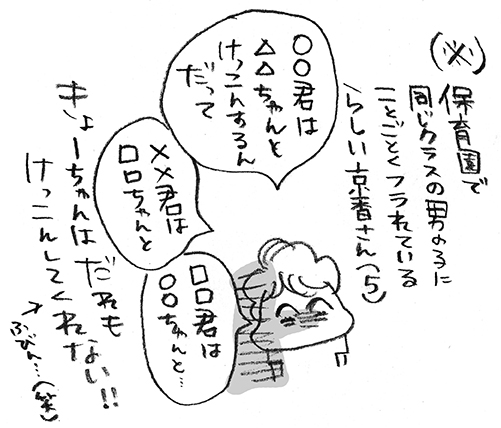 (※)
保育園で
同じクラスの男の子に
ことごとくフラれている
らしい京香さん(5)
○○君は
△△ちゃんと
けっこんするん
だって
××君は
□□ちゃんと
□□君は
○○ちゃんと…
きょーちゃんはだれも
けっこんしてくれない!!
ふびん…(笑)